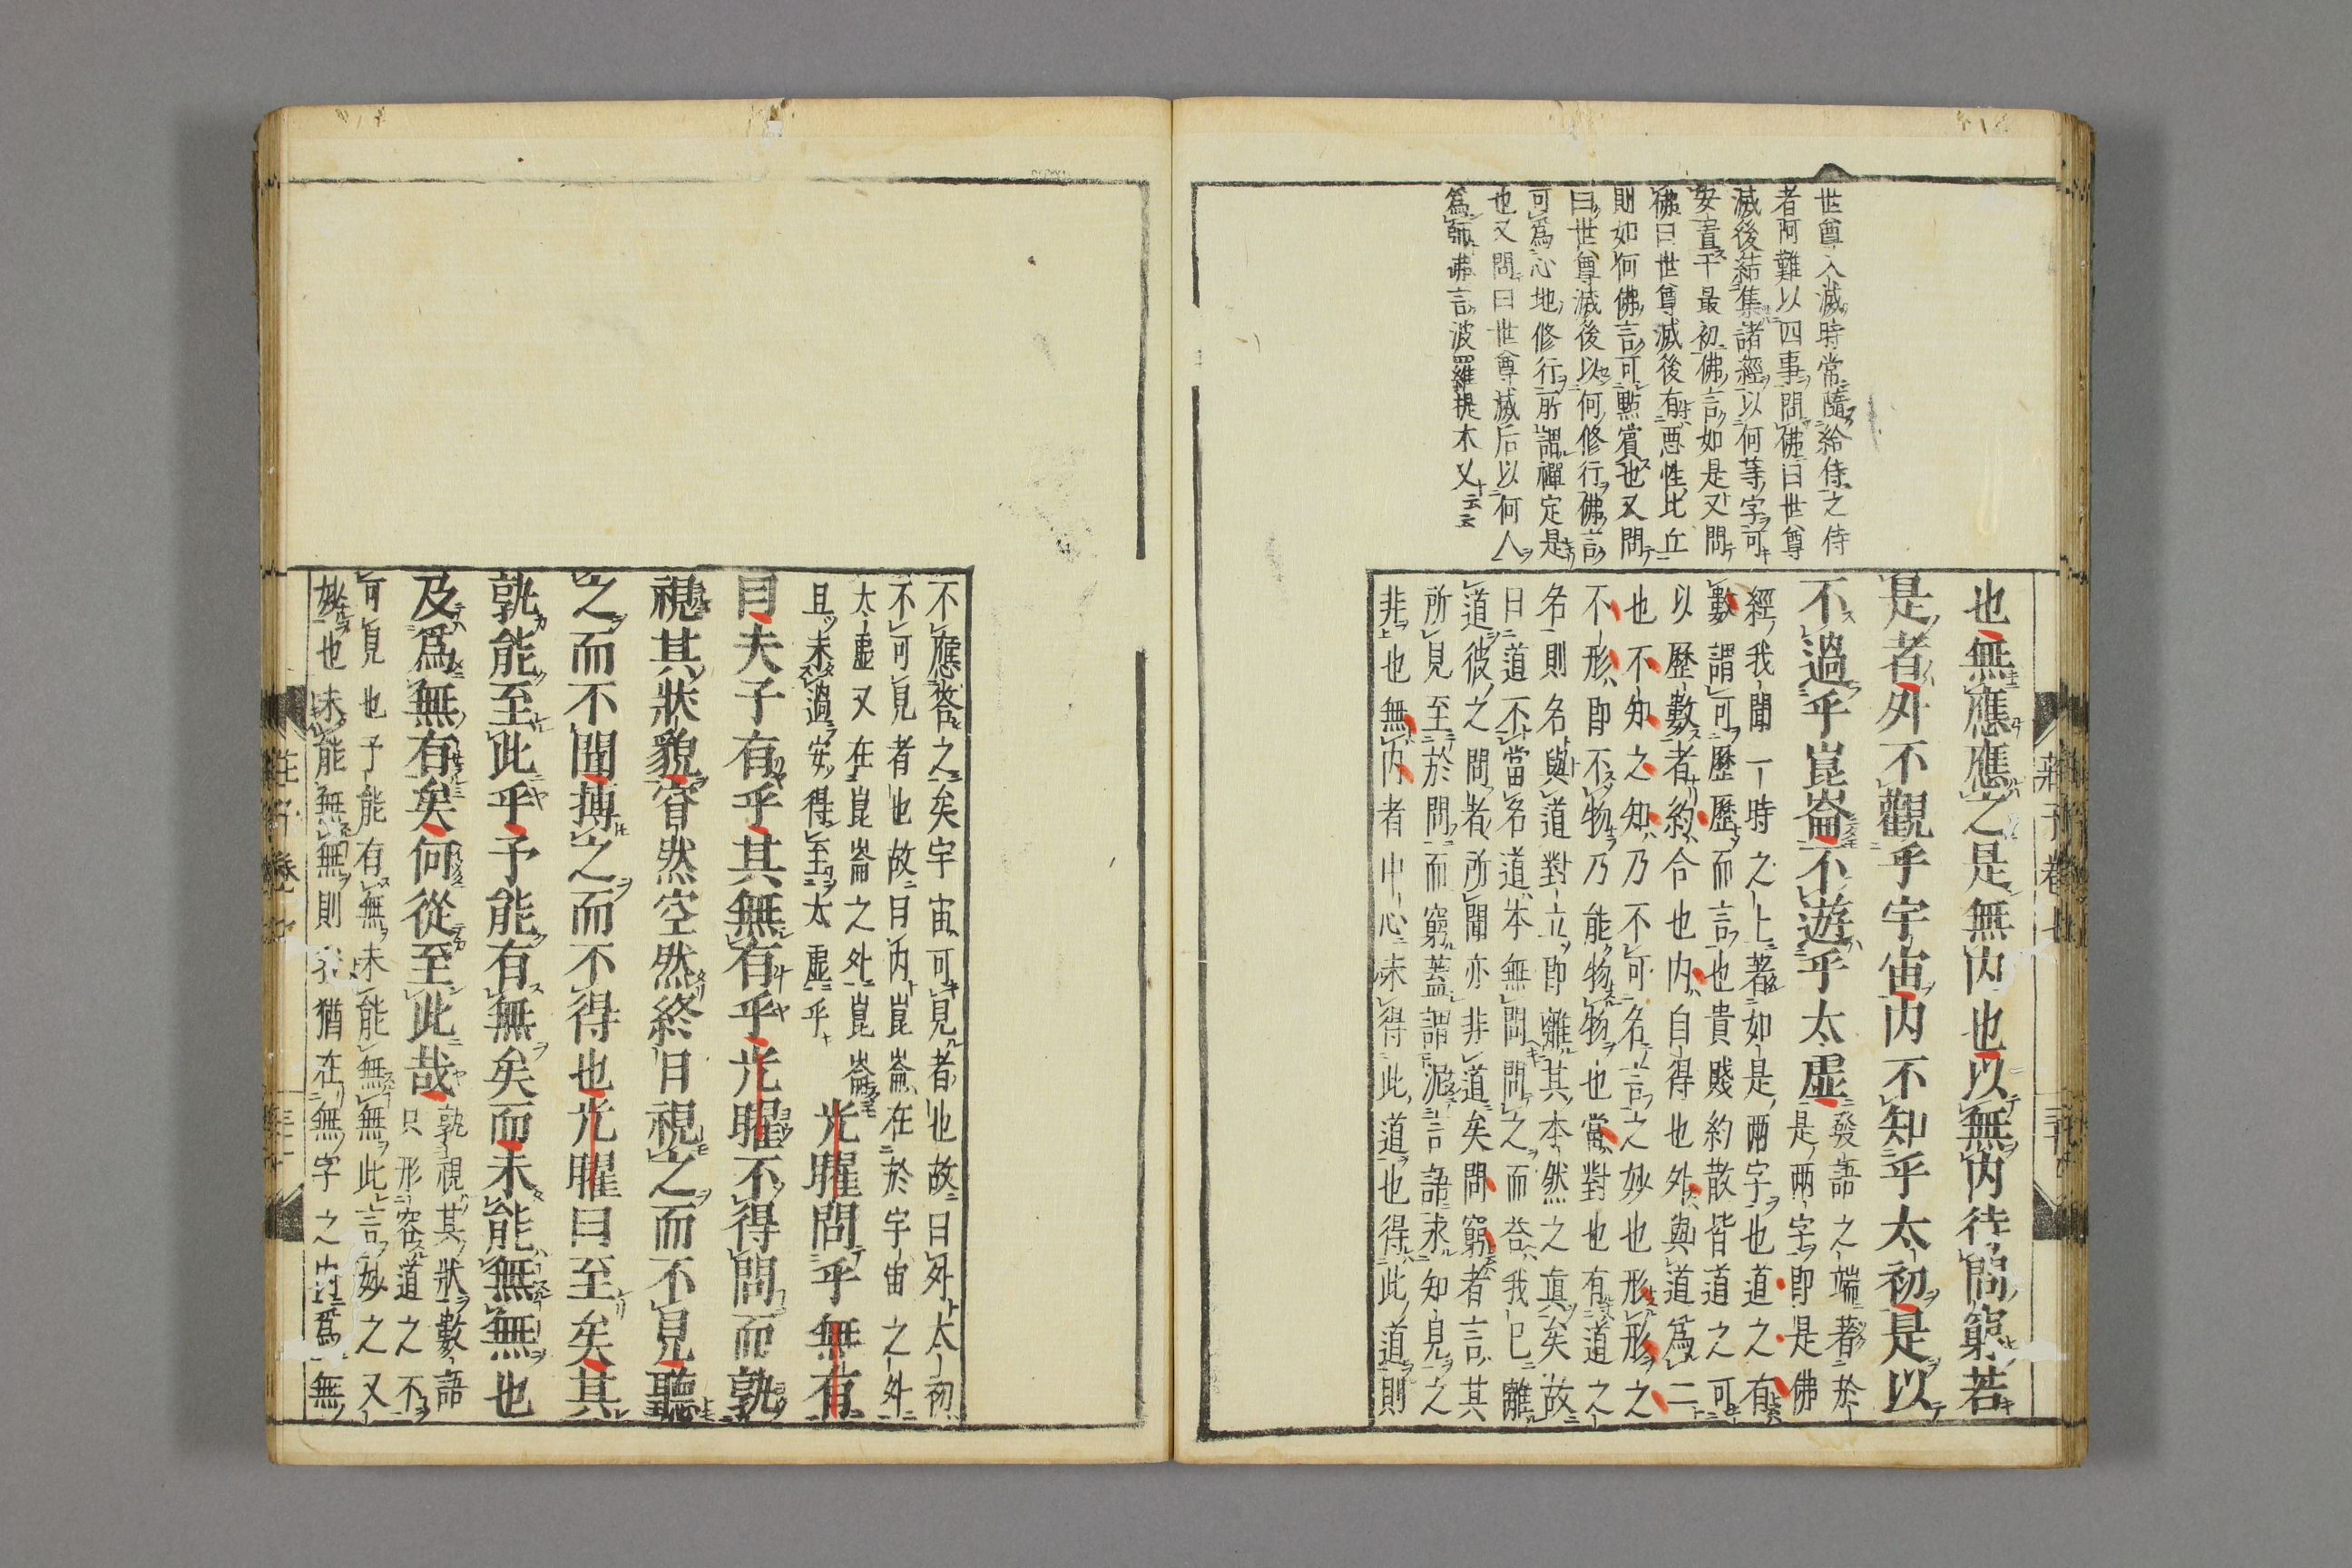 世尊入滅時常隨給侍之侍
者阿難以四事問佛曰世尊
滅後結集諸經以何等字可
安置于最初佛言如是又問
佛曰世尊滅後有惡性比丘
則如何佛言可默擯也又問
曰世尊滅後以何修行佛言
可爲心地修行所謂禪定是
也又問曰世尊滅后以何人
爲師佛言波羅提木叉云云
也無應應之是無内也以無内待問窮若
是者外不觀乎宇宙内不知乎太初是以
不過乎崑崙不遊乎太虛
發語之端著於
是兩字即是佛
經我聞一時之上著如是兩字也道之有
數謂可歷歷而言也貴賤約散皆道之可
以歷數者約合也内自得也外與道爲二
也不知之知乃不可名言之妙也形形之
不形即不物乃能物物也當對也有道之
名則名與道對立即離其本然之真矣故
曰道不當名道本無問問之而荅我已離
道彼之問者所聞亦非道矣問窮者言其
所見至於問而窮蓋謂泥言語求知見之
非也無内者中心未得此道也得此道則
莊子卷七
不應荅之矣宇宙可見者也故曰外太初
不可見者也故曰内崑崙在於宇宙之外
太虛又在崑崙之外崑崙
且未過安得至太虛乎
光曜問乎無有
曰夫子有乎其無有乎光曜不得問而孰
視其狀貌窅然空然終日視之而不見聽
之而不聞搏之而不得也光曜曰至矣其
孰能至此乎予能有無矣而未能無無也
及爲無有矣何從至此哉
孰視其狀數語
只形容道之不
可見也予能有無未能無無此言妙之又
妙也未能無無則猶在無字之爲無
莊子卷七